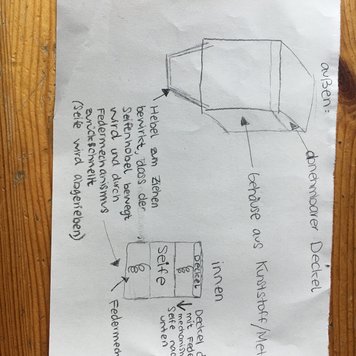 außen:
abnehmbarer Deckel
Gehäuse aus Kunststoff/Me
Hebel zum Ziehen
bewirkt, dass der
Seifenhobel bewegt
wird und durch
Federmechanismus
zurückschnellt
(Seife wird abgerieben)
innen
Deckel
Seife
Deckel
mit Fede
mechanism
Seife nac
unten
Federmech